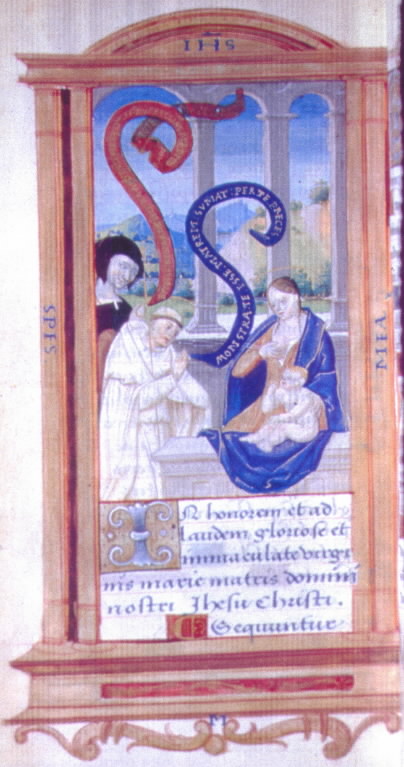 IHS
SPES
MEA
MONSTRATE ESSE MATREM SVMAT PER TE PRECES
IN honorem et ad
laudem gloriose et
immaculate virgi
nis marie matris domini
nostri Jhesu Christi.
Sequuntur
M